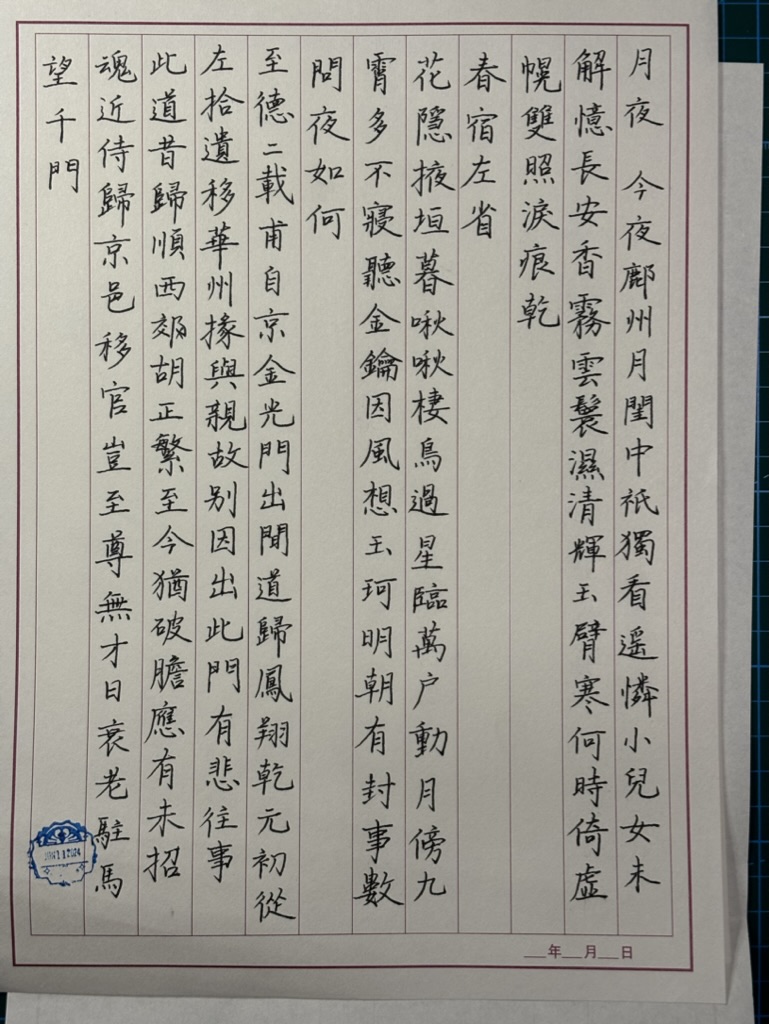 月夜 今夜鄜州月閨中祇獨看遥憐小兒女未
解憶長安香霧雲鬟濕清輝玉臂寒何時倚虛
幌雙照淚痕乾
春宿左省
花隱掖垣暮啾啾棲鳥過星臨萬户動月傍九
霄多不寢聽金鑰因風想玉珂明朝有封事數
問夜如何
至德二載甫自京金光門出聞道歸鳳翔乾元初從
左拾遺移華州掾與親故别因出此門有悲往事
此道昔歸順西郊胡正繁至今猶破膽應有未招
魂近侍歸京邑移官豈至尊無才日衰老駐馬
望千門
___年___月___日